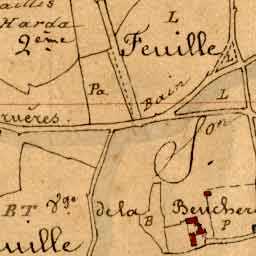 ailles
Harda
2ème
L
Feuille
Pa
Bain
L
L
ruères
Son
B T
Vge
de la
B
Beucher
P
uille